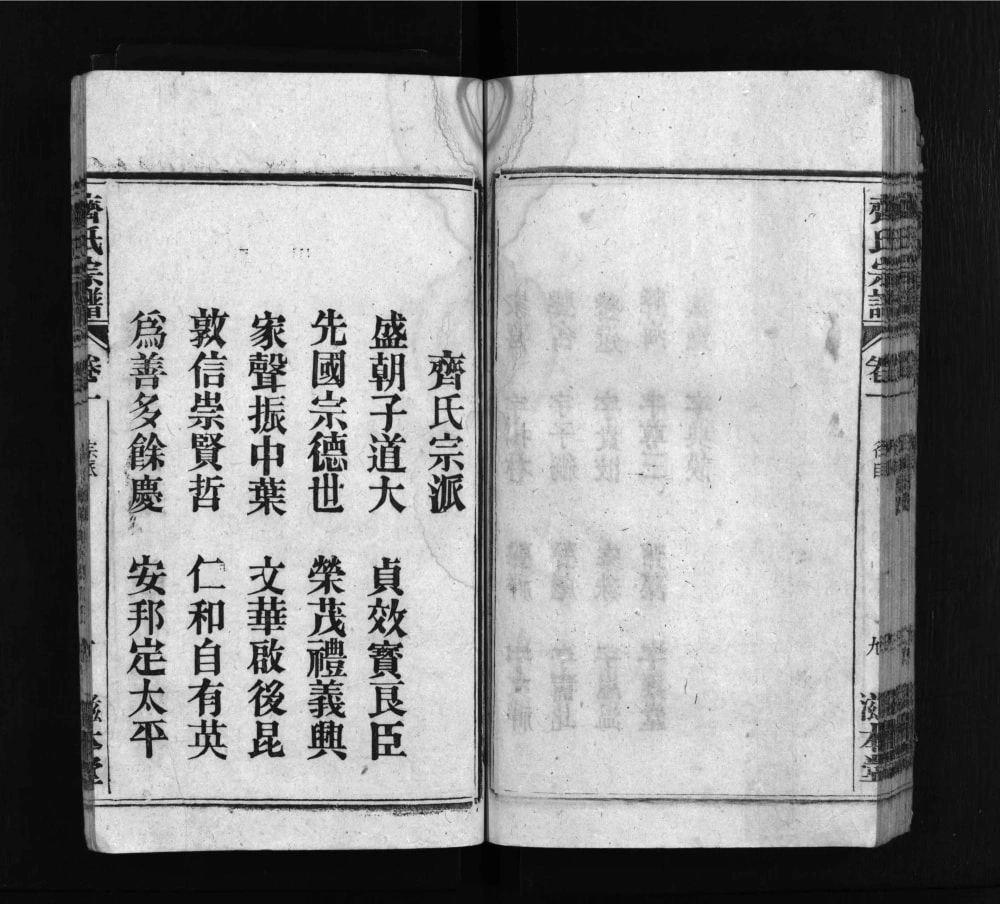 齊氏宗譜
卷一
九
滋本堂
齊氏宗派
盛朝子道大　貞效寳良臣
先國宗德世　榮茂禮義興
家聲振中葉　文華啟後昆
敦信崇賢哲　仁和自有英
爲善多餘慶　安邦定太平
齊氏宗譜
卷一
宗派
滋本堂